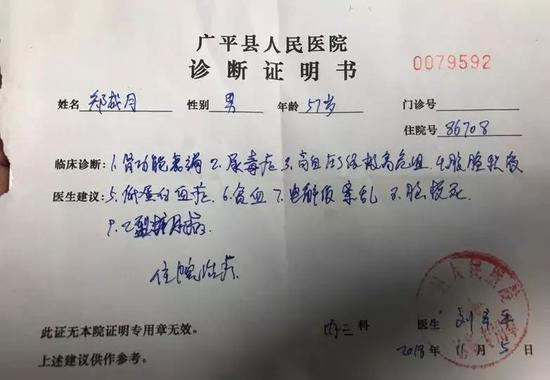 广平县人民医院
诊断证明书
0079592
姓名 郑成月 性别 男 年龄 57岁 门诊号
住院号 86708
临床诊断:1.肾功能衰竭 2.尿毒症 3.高血压3级极高危组 4.腹腔积液
医生建议:5.低蛋白血症 6.贫血 7.电解质紊乱 8.脑梗死
9.2型糖尿病
住院治疗
此证无本院证明专用章无效。 内二 科 医生
上述建议供作参考。 2018 年 11 月 5 日